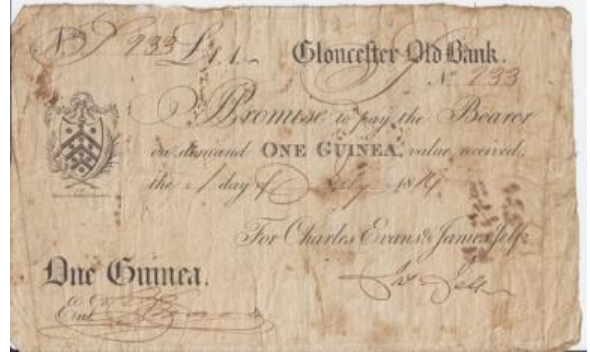 No 933 £1.1.~ Gloucester Old Bank.
No 933
I Promise to pay the Bearer
on demand ONE GUINEA, value received,
the 1 day of July 1814
For Charles Evans & James Jelf
Jas Jelf
One Guinea.
Entd